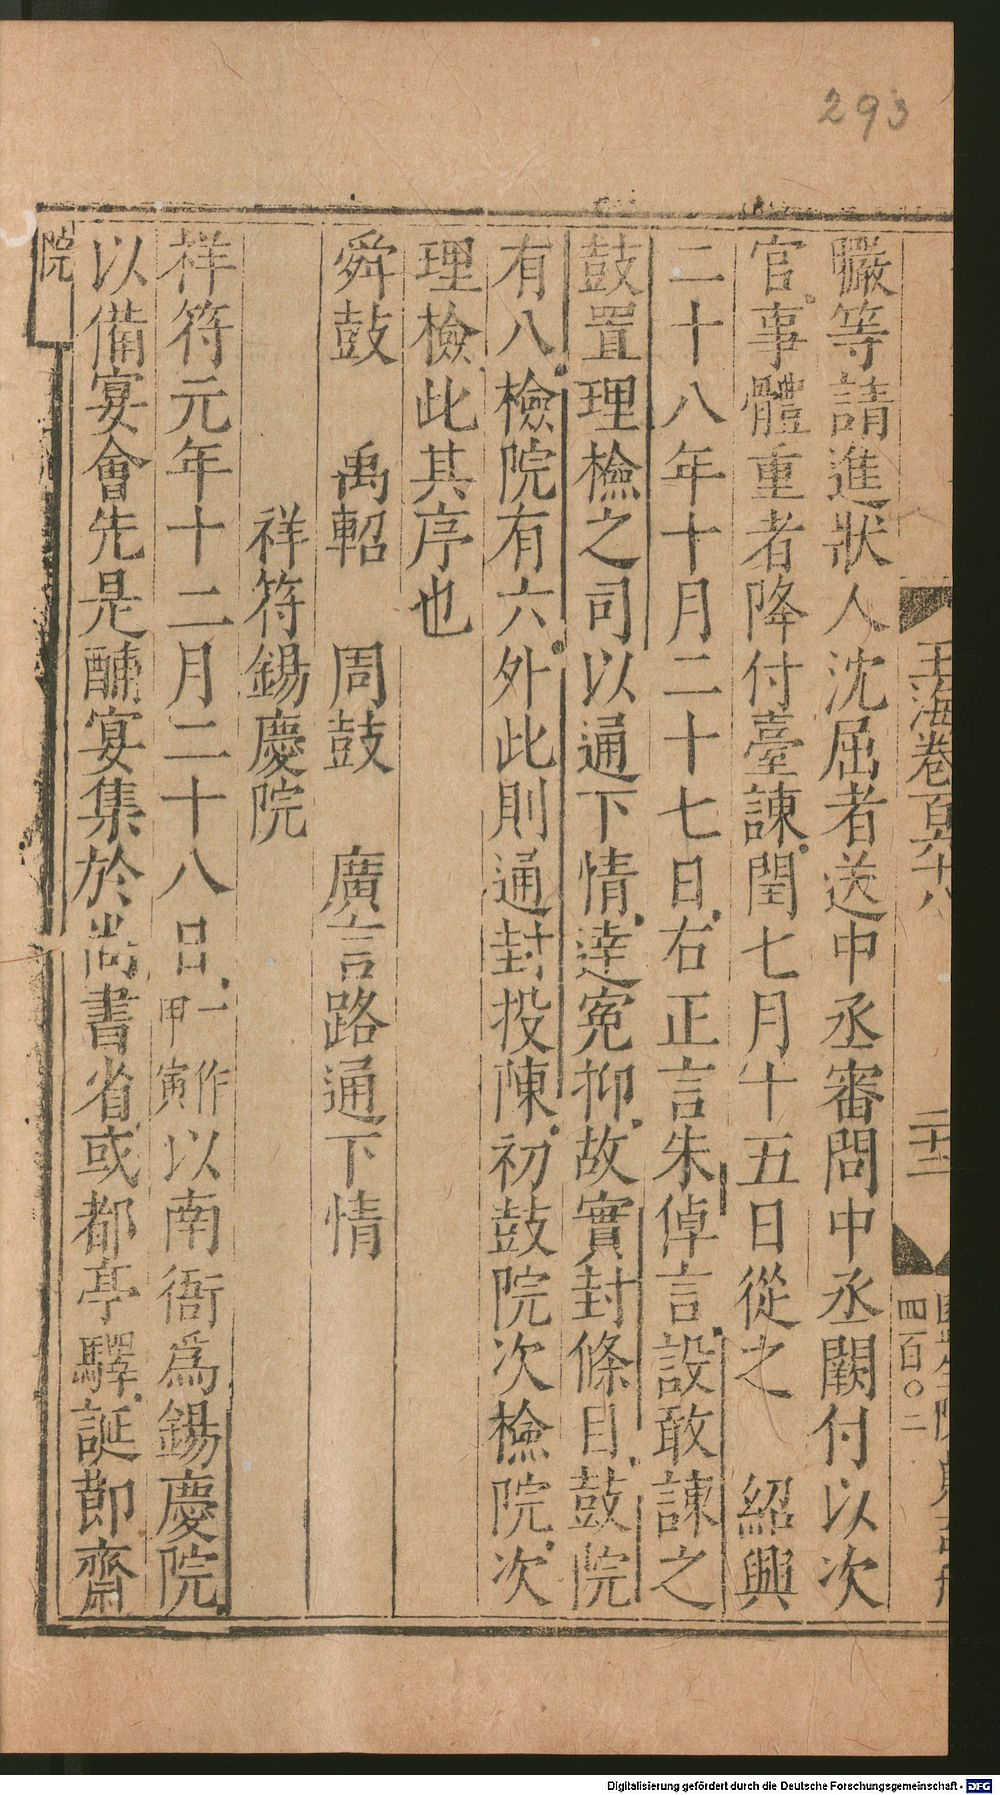 293
巖等請進狀人沈屈者送中丞審問中丞闕付以次
官事體重者降付臺諫閏七月十五日從之 紹興
二十八年十月二十七日右正言朱倬言設敢諫之
鼓置理檢之司以通下情達寃抑故實封條目鼓院
有八檢院有六外此則通封投陳初鼓院次檢院次
理檢此其序也
舜鼓 禹軺 周鼓 廣言路通下情
祥符錫慶院
祥符元年十二月二十八日一作甲寅以南衙爲錫慶院
以備宴會先是酺宴集於尚書省或都亭驛誕節齋
院
玉海卷百六十八
二十二
四百〇二
Digitalisierung gefördert durch die Deutsche Forschungsgemeinschaft - DFG